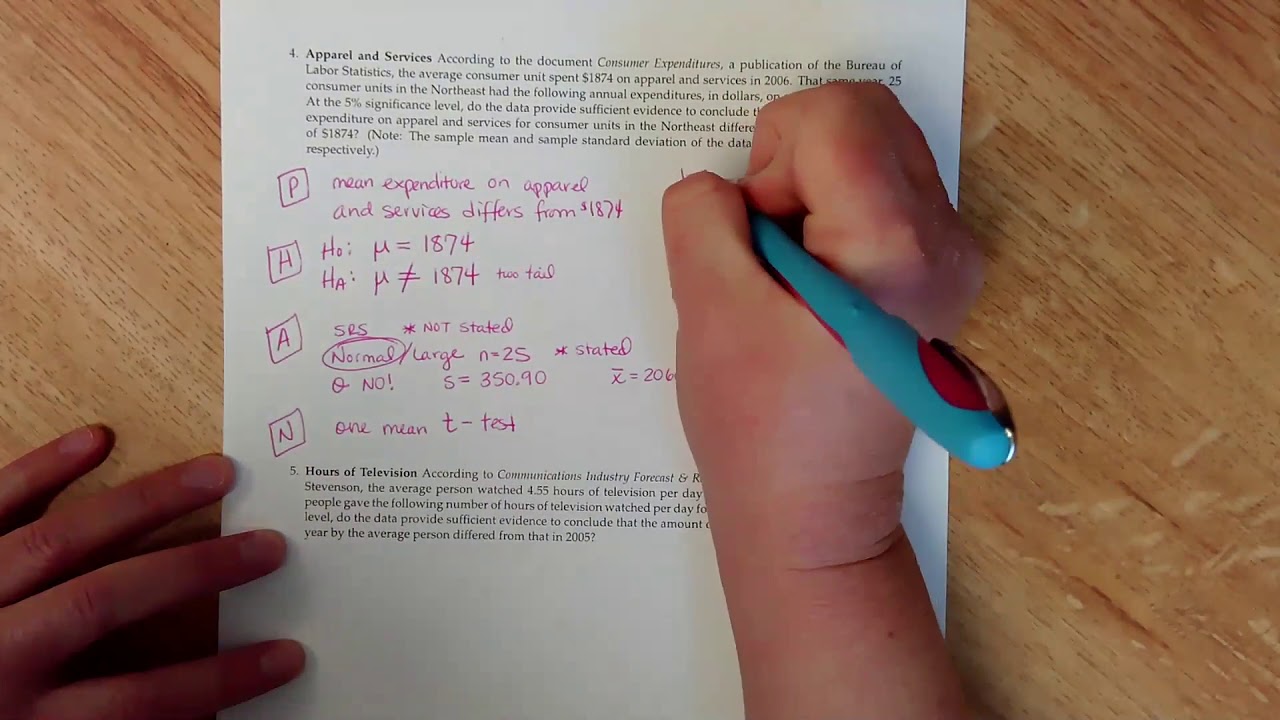 4. Apparel and Services According to the document Consumer Expenditures, a publication of the Bureau of
Labor Statistics, the average consumer unit spent $1874 on apparel and services in 2006. That same year, 25
consumer units in the Northeast had the following annual expenditures, in dollars, on
At the 5% significance level, do the data provide sufficient evidence to conclude
expenditure on apparel and services for consumer units in the Northeast
of $1874? (Note: The sample mean and sample standard deviation of the data
respectively.)
P mean expenditure on apparel
and services differs from $1874
H H0: μ = 1874
HA: μ ≠ 1874 two tail
A SRS * NOT stated
Normal/Large n=25 * stated
σ NO! s = 350.90 x̄ = 206
N one mean t-test
5. Hours of Television According to Communications Industry Forecast &
Stevenson, the average person watched 4.55 hours of television per day
people gave the following number of hours of television watched per day
level, do the data provide sufficient evidence to conclude that the amount
year by the average person differed from that in 2005?